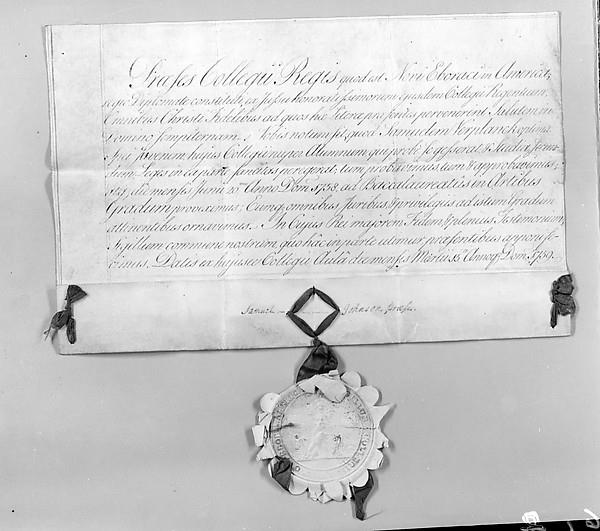 Præses Collegii Regis quod est Novi Eboraci in America,
Regio Diplomate constitutus, ex Jussu Honoratissimorum ejusdem Collegii Regentium,
Omnibus Christi Fidelibus ad quos hæ Literæ præsentes pervenerint Salutem in
Domino sempiternam. Nobis notum sit, quod Samuelem Verplanck optimæ
Spei Juvenem hujus Collegii nuper Alumnum qui probe se gesserat, & Studia
Leges in ea parte sancitas peregerat, tum probavimus tum & approbavimus;
diemensis Junii 21º Anno Dom. 1758, ad Baccalaureatus in Artibus
Gradum proveximus; Eumq. omnibus Juribus & privilegiis ad istum Gradum
attinentibus ornavimus. In Cujus Rei majorem Fidem & plenius Testimonium,
Sigillum commune nostrum, quo hac in parte utimur præsentibus apponi
cimus. Datis ex hujusce Collegii Aulâ die mensis Martii 15º Annoq. Dom. 1759.
Samuel Johnson, Præses.